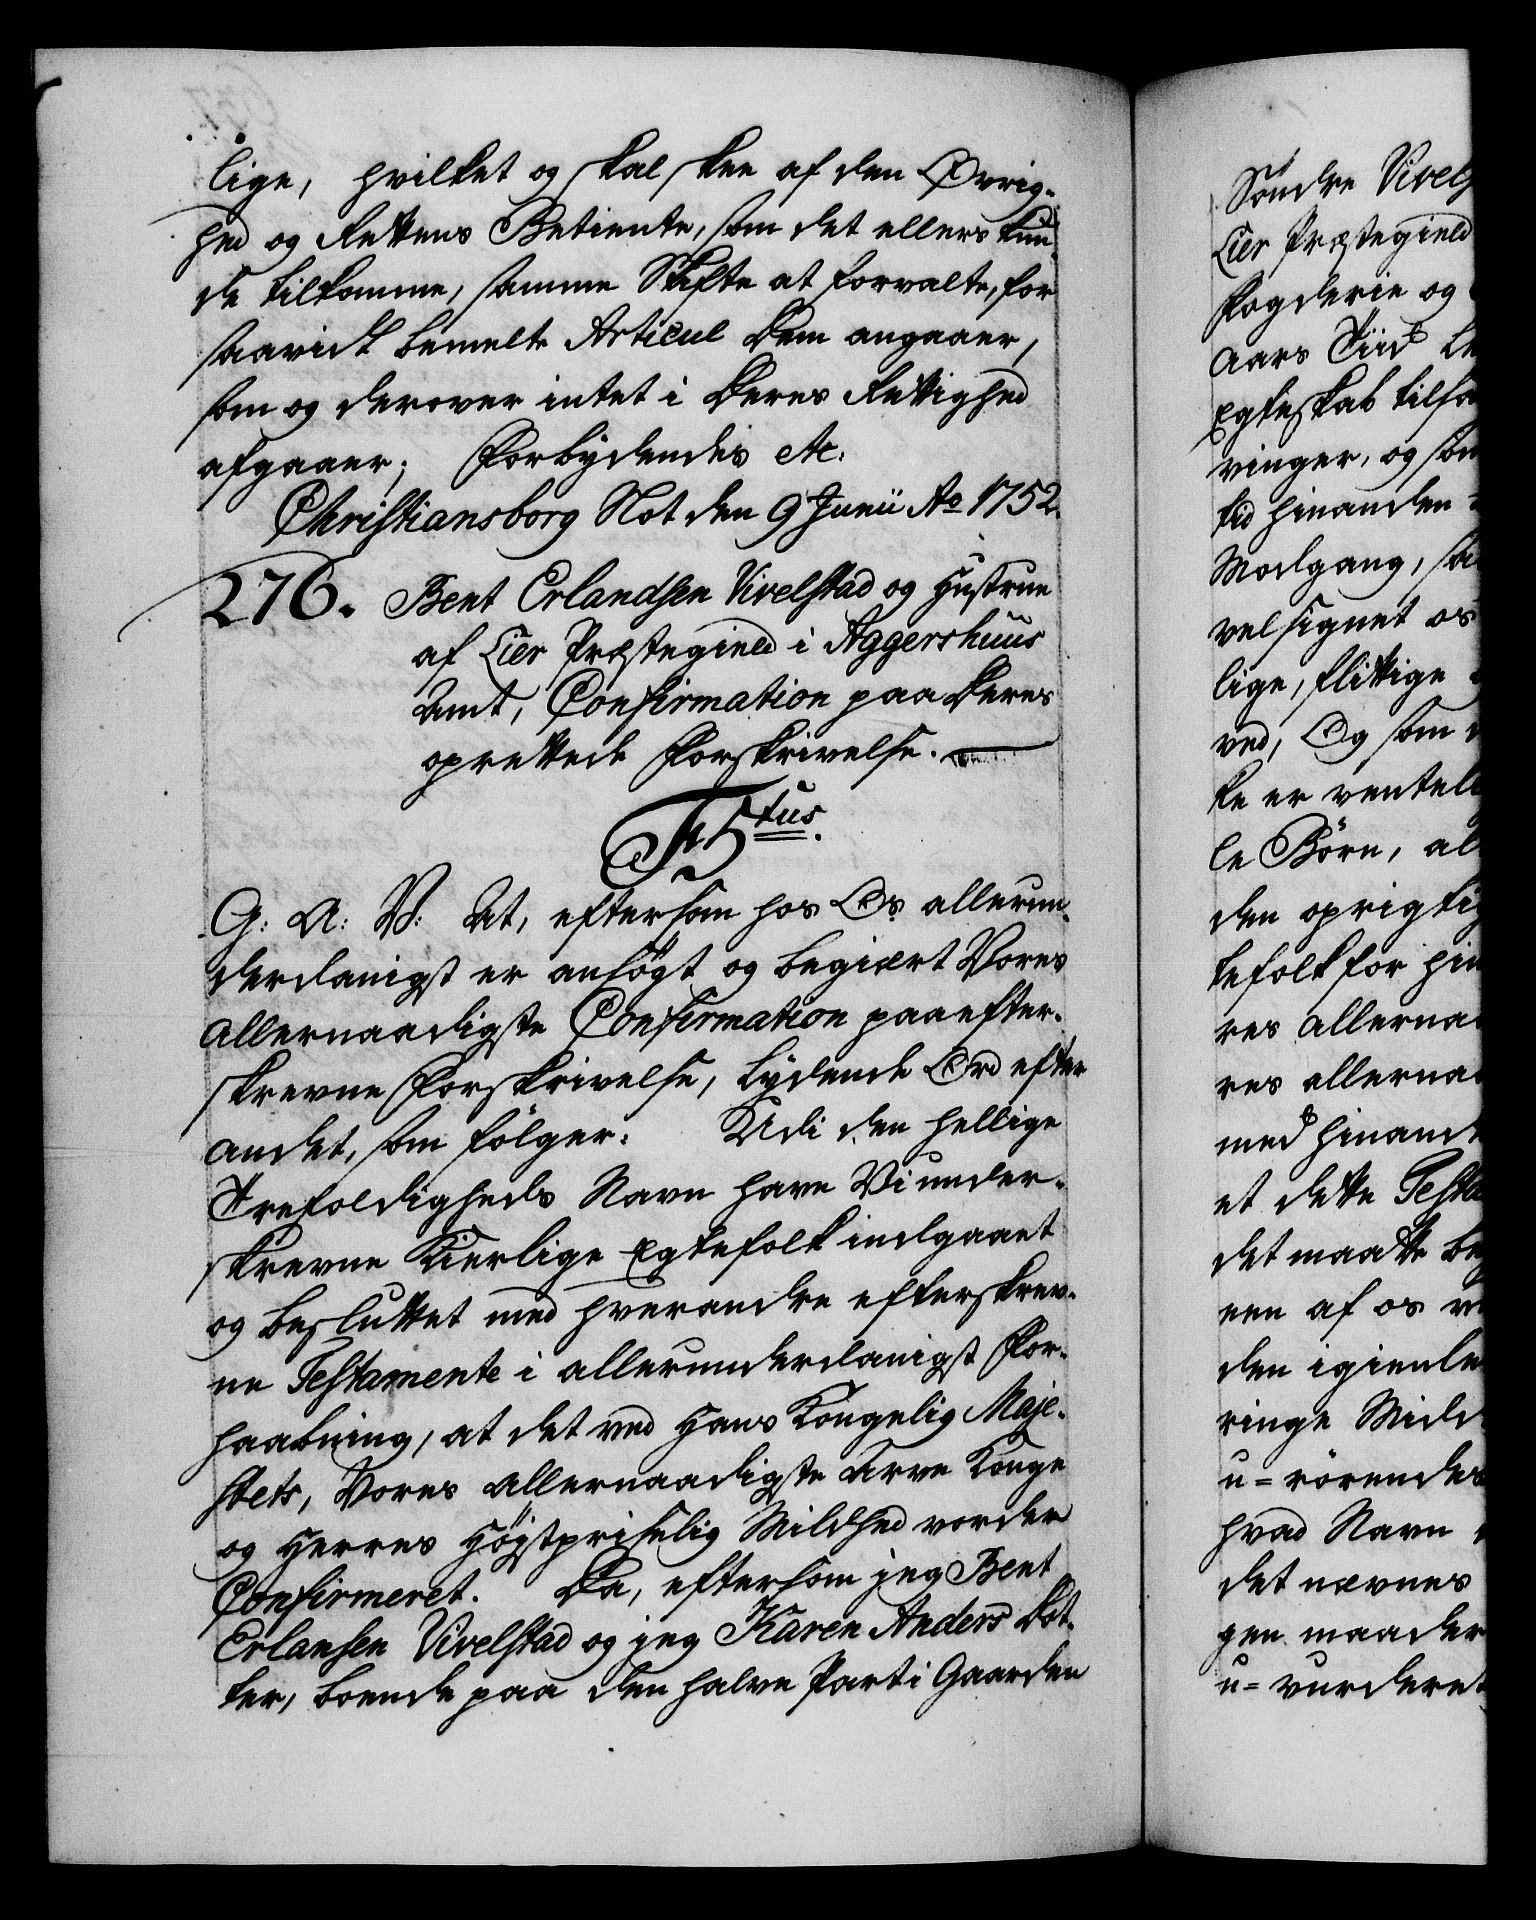 lige, hvilket og skal skee af den Øvrig-
hed og Rettens Betiente, som det ellers kun-
de tilkomme, samme Skifte at forvalte, for
saavidt bemelte Articul Dem angaaer,
som og derover intet i Deres Rettighed
afgaaer; Forbydendis etc.
Christiansborg Slot den 9 Junii Ao 1752.
276. Bent Erlandsen Vivelstad og Hustrue
af Lier Præstegield i Aggershuus
Amt, Confirmation paa Deres
oprettede Forskrivelse.
F5tus.
G: A: V: At, eftersom hos Os allerun-
derdanigst er ansögt og begiært Vores
allernaadigste Confirmation paa efter-
skrevne Forskrivelse, lydende Ord efter
andet, som fölger: Udi den hellige
Trefoldigheds Navn have Vi under-
skrevne Kierlige Egtefolk indgaaet
og besluttet med hverandre efterskrev-
ne Testamente i allerunderdanigst For-
haabning, at det ved Hans Kongelig Maje-
stets, Vores allernaadigste Arve Konge
og Herres Högstpriselig Mildhed vorder
Confirmeret. Da, eftersom jeg Bent
Erlansen Vivelstad og jeg Karen Anders Dot-
ter, boende paa den halve Part i Gaarden
Söndre Vivels
Lier Præstegield
Fogderie og
aars Tiid
Egteskab tilfo
vinger, og som
tid hinanden
Modgang, sa
velsignet os
lige, flittige
ved, Og som
ke er ventel
le Börn, al
den oprigtig
tefolk for hin
res allernaa
res allernaa
med hinand
et dette Testa
det maatte be
een af os
den igienle
ringe Midd
u=rörendes
hvad Navn
det nævnes
gen maader
u=vurderet